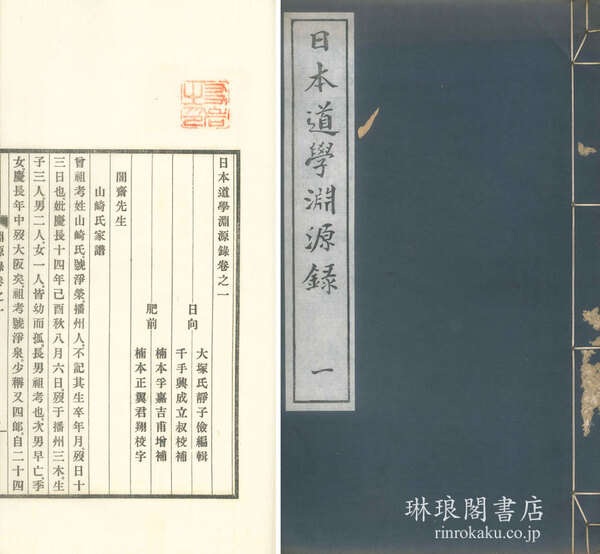 日本道學淵源錄 一
日本道學淵源錄卷之一
大塚氏靜子儉編輯
日向 千手興成立叔校補
肥前 楠本孚嘉吉甫增補
楠本正翼君翔校字
闇齋先生
山崎氏家譜
曾祖考姓山崎氏號淨榮。播州人。不記其生卒年月。歿日十
三日也。妣慶長十四年己酉秋八月六日。歿于播州三木。生
子三人。男二人。女一人。皆幼而孤。長男祖考也。次男早亡。季
女。慶長年中歿大阪矣。祖考號淨泉。少稱又四郎。自二十四
淵源錄卷之一
琳琅閣書店
rinrokaku.co.jp